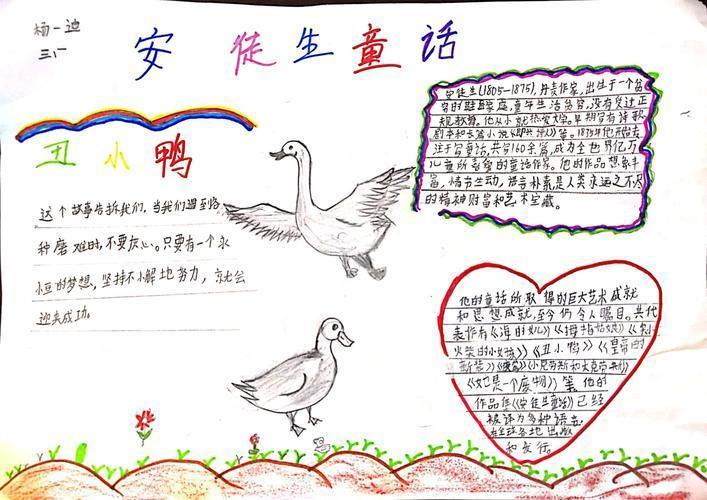 杨一迪
三、厂
安徒生童话
丑小鸭
这个故事告诉我们，当我们遇到各
种磨难时，不要灰心。只要有一个永
恒的梦想，坚持不懈地努力，就会
迎来成功。
安徒生(1805—1875)，丹麦作家，出生于一个贫
穷的鞋匠家庭，童年生活贫穷，没有受过正
规教育。他从小就热爱文学。早期写有诗歌
剧本和长篇小说《即兴诗人》等。1835年他开始专
注于写童话，共写160余篇，成为全世界亿万
儿童所喜爱的童话作家。他的作品想象丰
富，情节生动，语言朴素是人类永远之不尽
的精神财富和艺术宝藏。
他的童话所取得的巨大艺术成就
和思想成就，至今仍令人瞩目。其代
表作有《海的女儿》《拇指姑娘》《卖小
火柴的小女孩》《丑小鸭》《皇帝的
新装》《小克劳斯和大克劳斯》
《她是一个废物》等。他的
作品集《安徒生童话》已经
被译为多种语言
在全球各地出版
和发行。